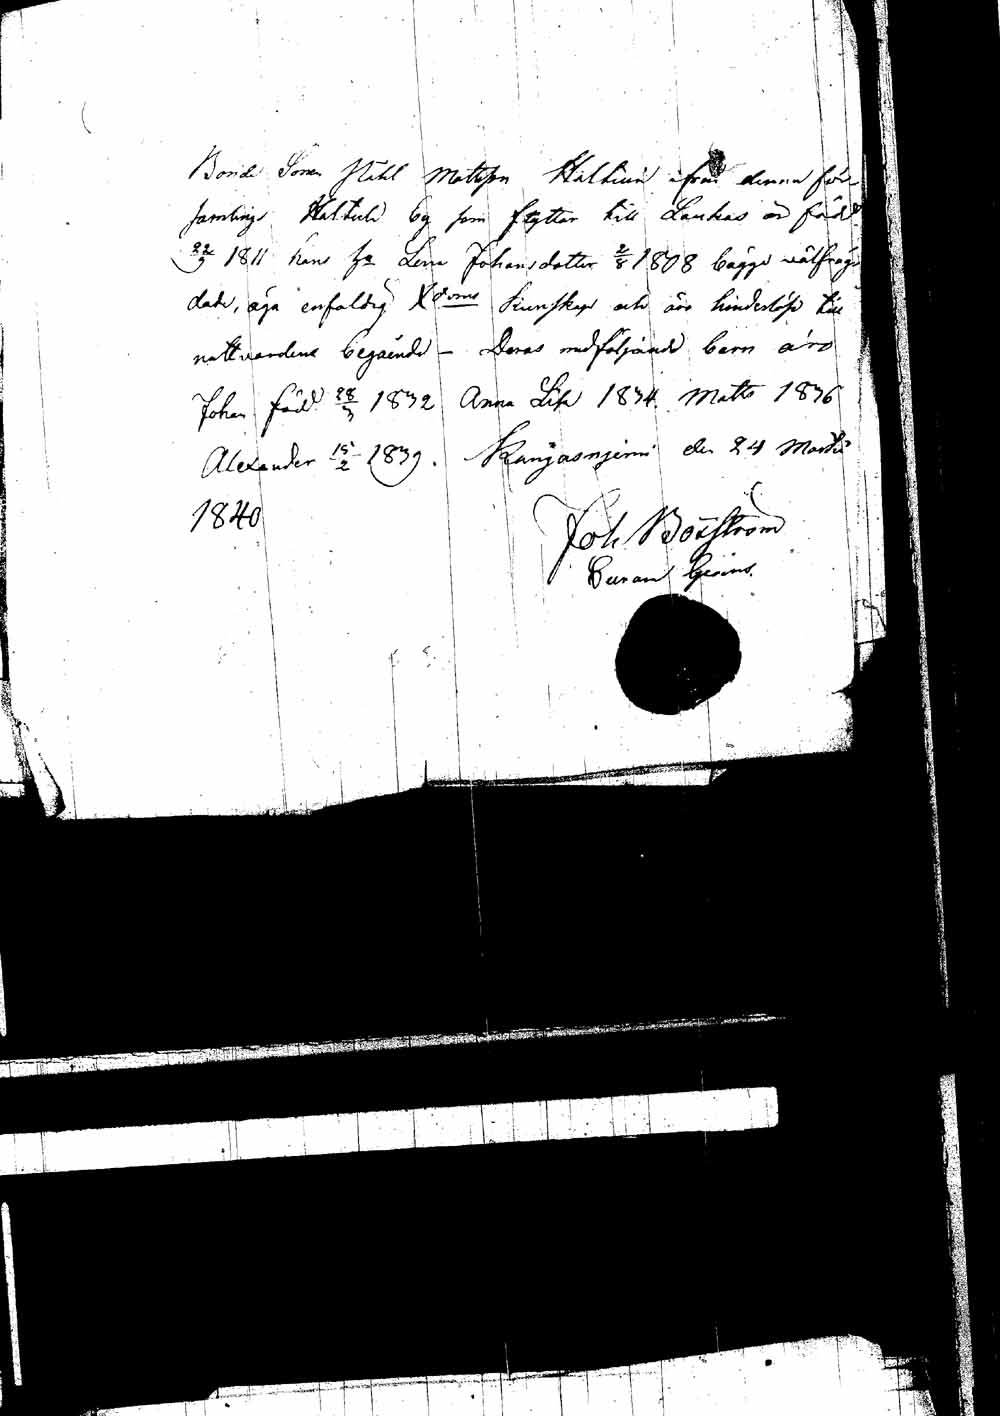 Bonde Sonen Påhl Mattsson Halttuin ifrån denna för-
samlings Halttula by som flyttar till Laukas är född
22/9 1811 hans h:a Lena Johansdotter 2/8 1808 bägge välfräg-
dade, äga enfaldig Xdoms kunskap och äro hinderlöse till
nattvardens begående – Deras medföljande barn äro
Johan född 28/3 1832 Anna Lisa 1834 Matts 1836
Alexander 15/2 1839. Kangasnjemi den 24 Martii
1840
Joh Boxström